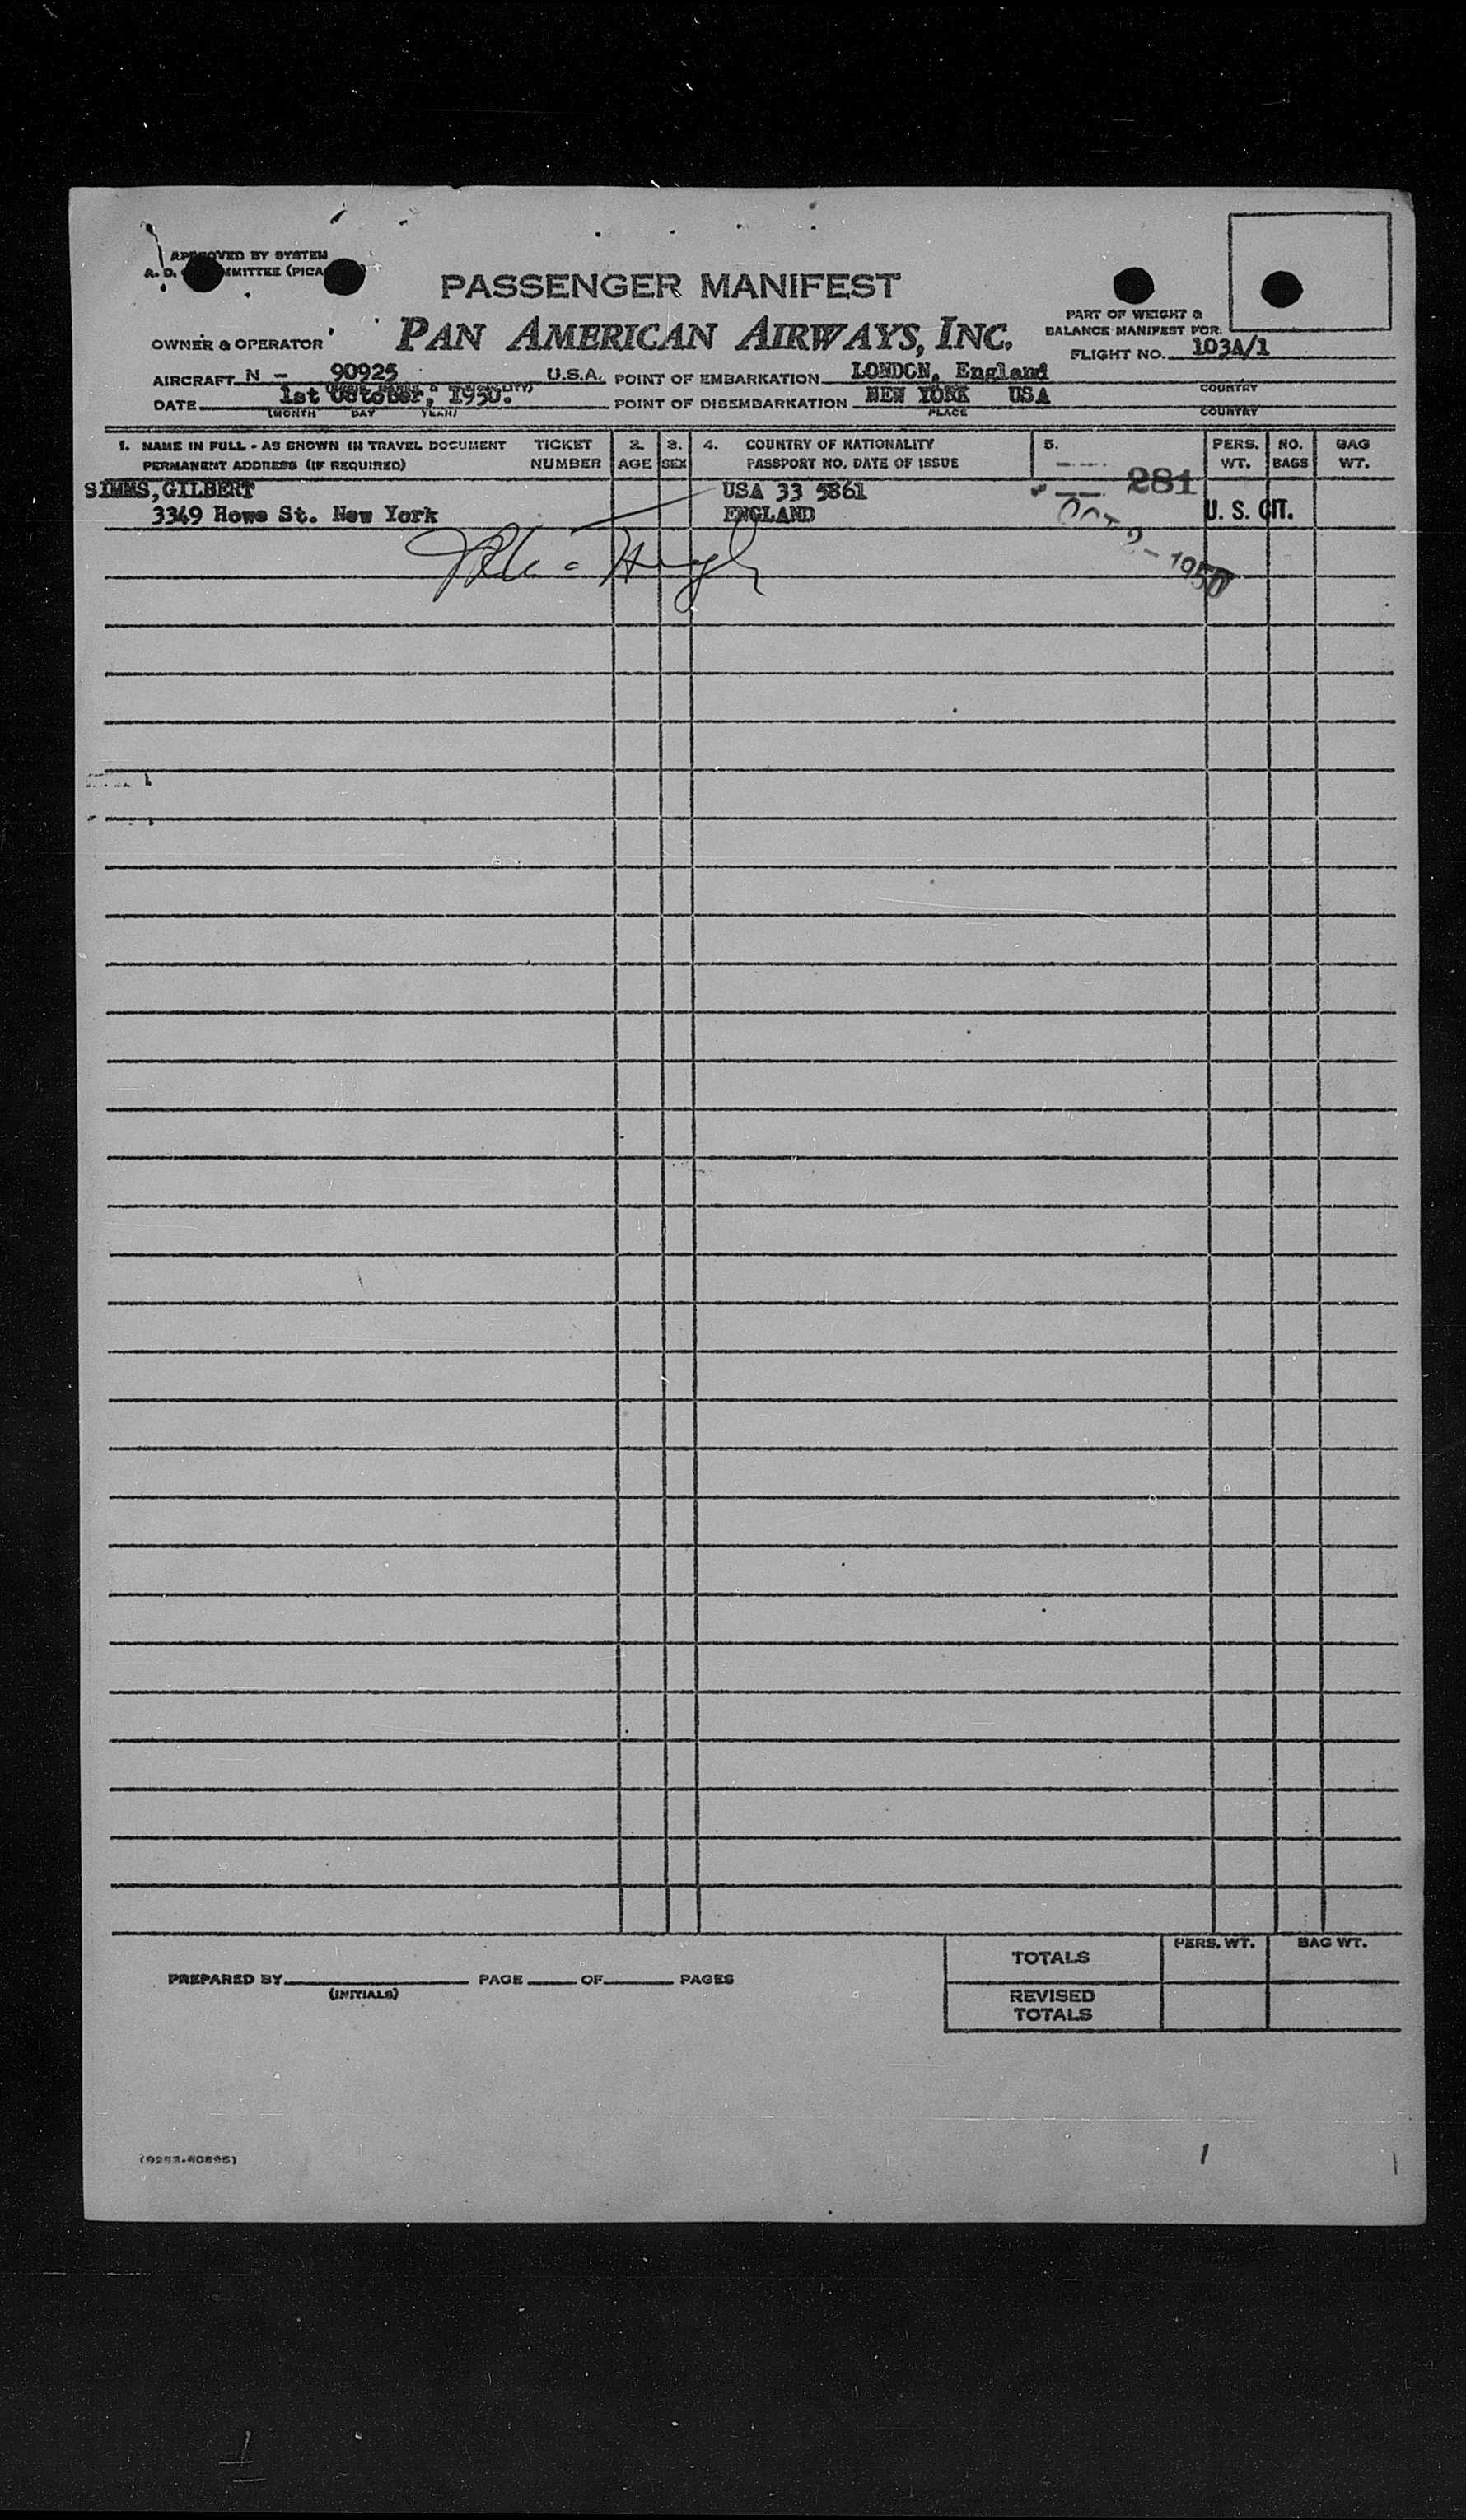 APPROVED BY SYSTEM
A. D. COMMITTEE (PICA
PASSENGER MANIFEST
PAN AMERICAN AIRWAYS, INC.
OWNER & OPERATOR
PART OF WEIGHT &
BALANCE MANIFEST FOR.
FLIGHT NO. 103A/1
AIRCRAFT N - 90925 U.S.A. POINT OF EMBARKATION LONDON, England
COUNTRY
DATE 1st October, 1950. POINT OF DISEMBARKATION NEW YORK USA
(MONTH DAY YEAR) PLACE COUNTRY
1. NAME IN FULL - AS SHOWN IN TRAVEL DOCUMENT TICKET 2. 3. 4. COUNTRY OF NATIONALITY 5. PERS. NO. BAG
PERMANENT ADDRESS (IF REQUIRED) NUMBER AGE SEX PASSPORT NO. DATE OF ISSUE WT. BAGS WT.
SIMMS, GILBERT USA 33 5861 281
3349 Howe St. New York ENGLAND U. S. CIT.
OCT 2 - 1950
PERS. WT. BAG WT.
TOTALS
PREPARED BY PAGE OF PAGES
(INITIALS)
REVISED
TOTALS